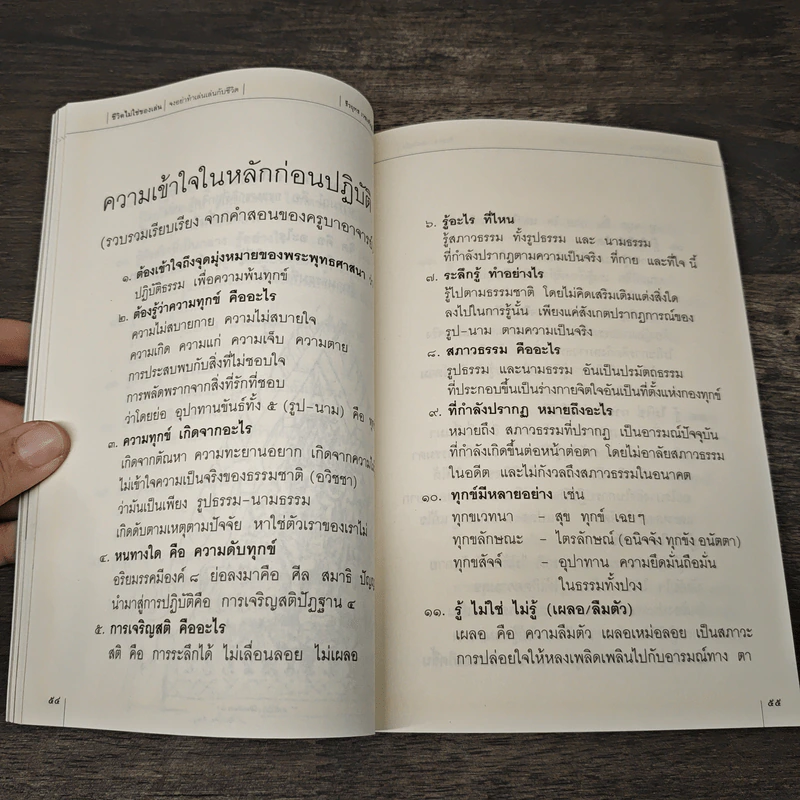 ชีวิตไม่ใช่ของเล่น | จงอย่าทำเล่นเล่นกับชีวิต |
ความเข้าใจในหลักก่อนปฏิบัติ
(รวบรวมเรียบเรียง จากคำสอนของครูบาอาจารย์)
๑. ต้องเข้าใจถึงจุดมุ่งหมายของพระพุทธศาสนา
ปฏิบัติธรรม เพื่อความพ้นทุกข์
๒. ต้องรู้ว่าความทุกข์ คืออะไร
ความไม่สบายกาย ความไม่สบายใจ
ความเกิด ความแก่ ความเจ็บ ความตาย
การประสบพบกับสิ่งที่ไม่ชอบใจ
การพลัดพรากจากสิ่งที่รักที่ชอบ
ว่าโดยย่อ อุปาทานขันธ์ทั้ง ๕ (รูป-นาม) คือ
๓. ความทุกข์ เกิดจากอะไร
เกิดจากตัณหา ความทะยานอยาก เกิดจากความ
ไม่เข้าใจความเป็นจริงของธรรมชาติ (อวิชชา)
ว่ามันเป็นเพียง รูปธรรม-นามธรรม
เกิดดับตามเหตุตามปัจจัย หาใช่ตัวเราของเราไม่
๔. หนทางใด คือ ความดับทุกข์
อริยมรรคมีองค์ ๘ ย่อลงมาคือ ศีล สมาธิ ปัญญา
นำมาสู่การปฏิบัติคือ การเจริญสติปัฏฐาน ๔
๕. การเจริญสติ คืออะไร
สติ คือ การระลึกได้ ไม่เลื่อนลอย ไม่เผลอ
๕๔
๖. รู้อะไร ที่ไหน
รู้สภาวธรรม ทั้งรูปธรรม และ นามธรรม
ที่กำลังปรากฏตามความเป็นจริง ที่กาย และที่ใจ นี้
๗. ระลึกรู้ ทำอย่างไร
รู้ไปตามธรรมชาติ โดยไม่คิดเสริมเติมแต่งสิ่งใด
ลงไปในการรู้นั้น เพียงแค่สังเกตปรากฏการณ์ของ
รูป-นาม ตามความเป็นจริง
๘. สภาวธรรม คืออะไร
รูปธรรม และนามธรรม อันเป็นปรมัตถธรรม
ที่ประกอบขึ้นเป็นร่างกายจิตใจอันเป็นที่ตั้งแห่งกองทุกข์
๙. ที่กำลังปรากฏ หมายถึงอะไร
หมายถึง สภาวธรรมที่ปรากฏ เป็นอารมณ์ปัจจุบัน
ที่กำลังเกิดขึ้นต่อหน้าต่อตา โดยไม่อาลัยสภาวธรรม
ในอดีต และไม่กังวลถึงสภาวธรรมในอนาคต
๑๐. ทุกข์มีหลายอย่าง เช่น
ทุกขเวทนา - สุข ทุกข์ เฉยๆ
ทุกขลักษณะ - ไตรลักษณ์ (อนิจจัง ทุกขัง อนัตตา)
ทุกขสัจจ์ - อุปาทาน ความยึดมั่นถือมั่น
ในธรรมทั้งปวง
๑๑. รู้ ไม่ใช่ ไม่รู้ (เผลอ/ลืมตัว)
เผลอ คือ ความลืมตัว เผลอเหม่อลอย เป็นสภาวะ
การปล่อยใจให้หลงเพลิดเพลินไปกับอารมณ์ทาง ตา
๕๕